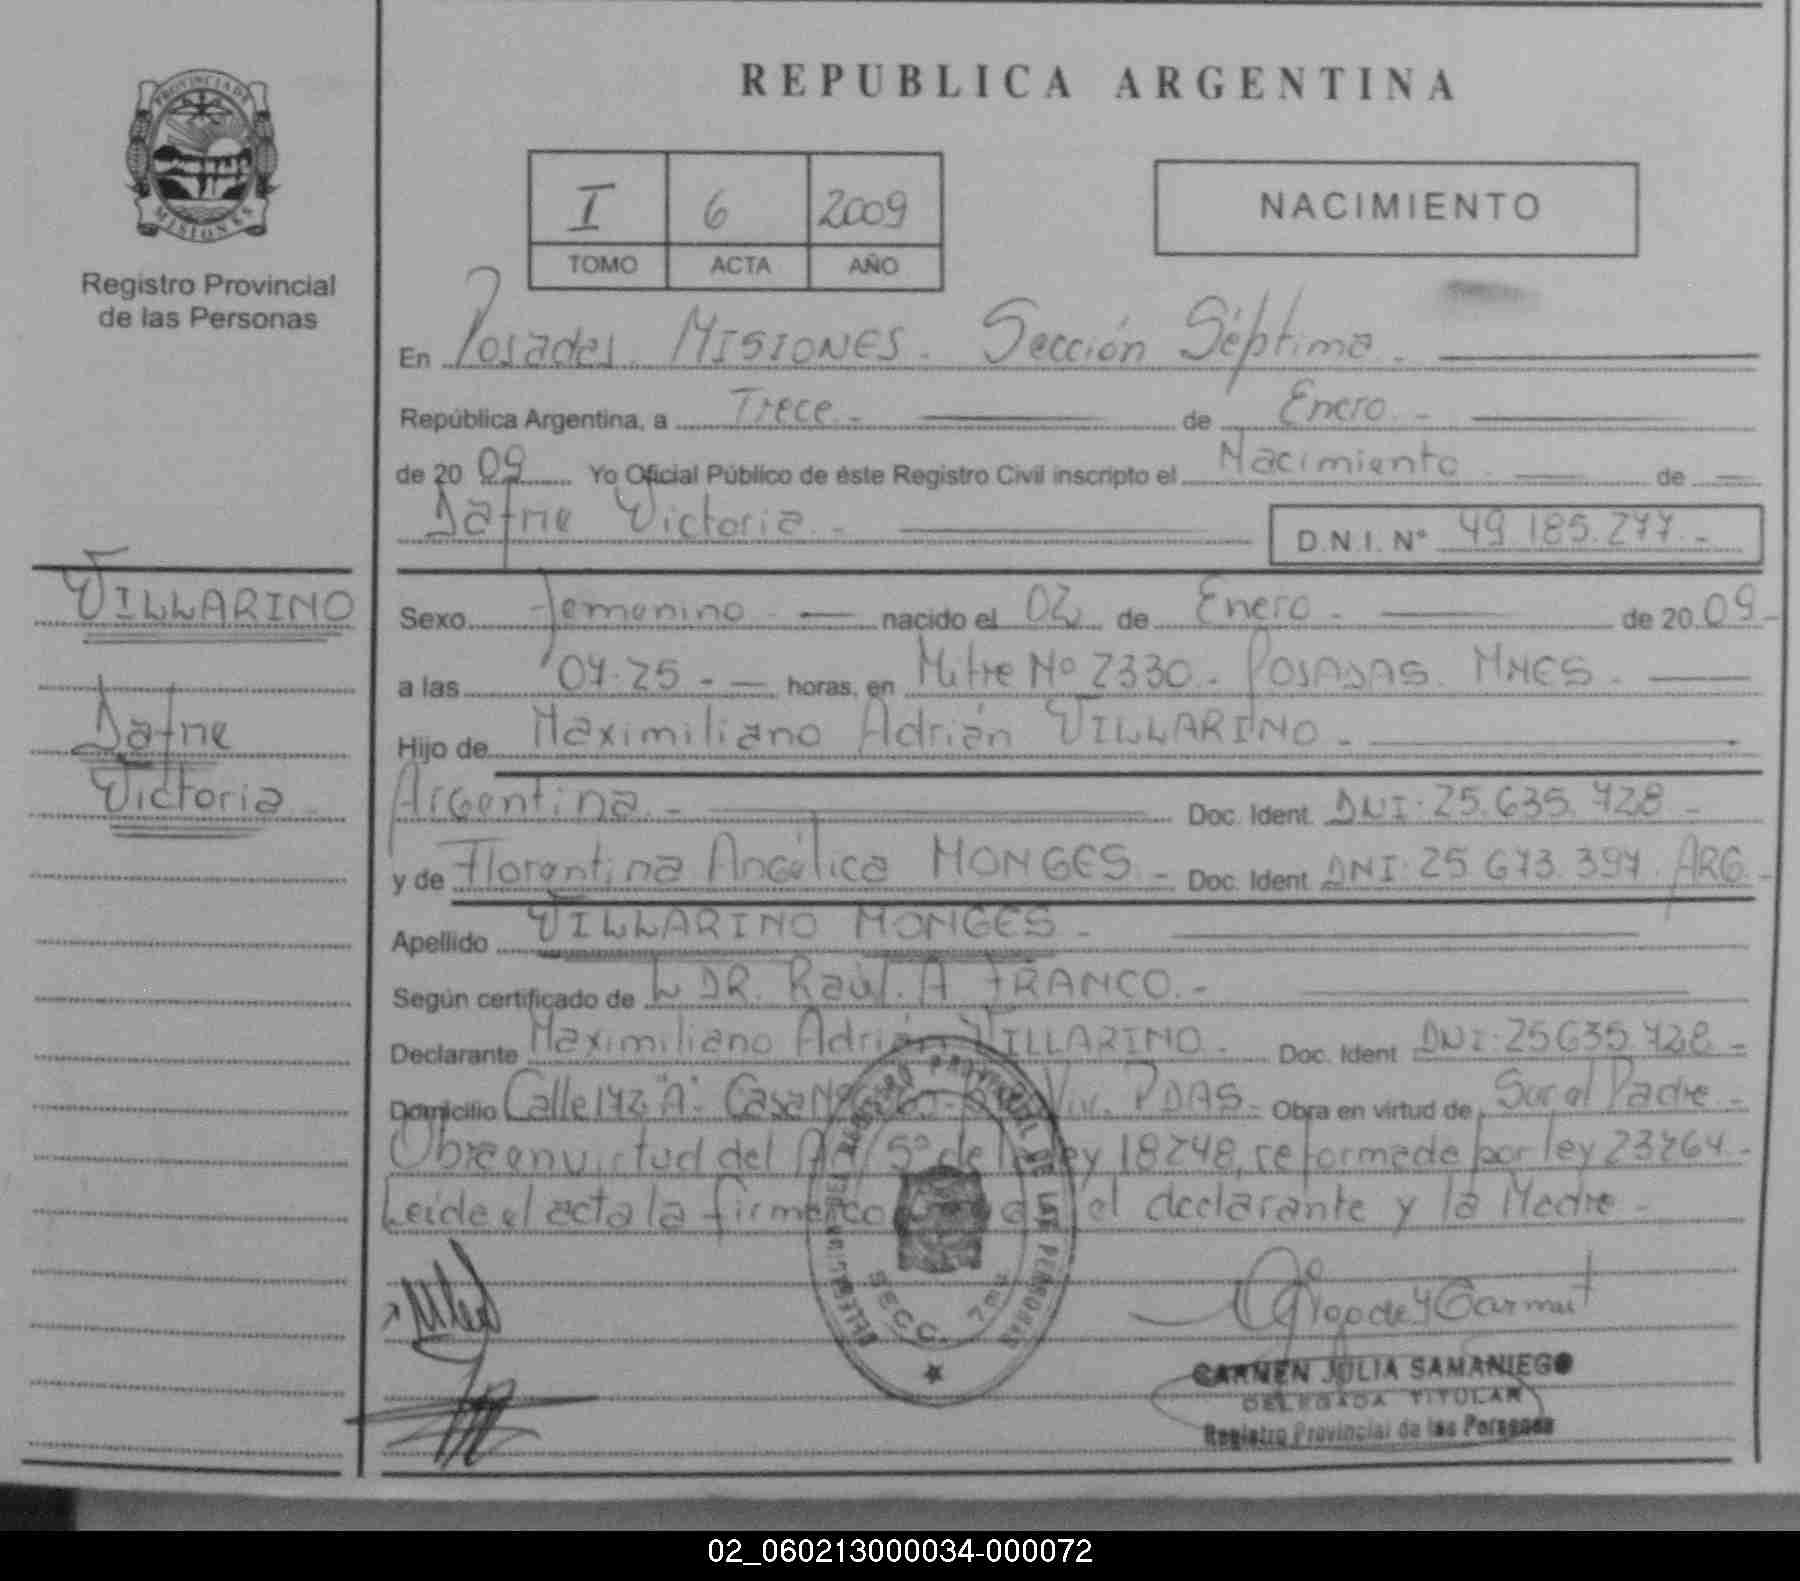 REPUBLICA ARGENTINA
PROVINCIA DE
MISIONES
Registro Provincial
de las Personas
I 6 2009
TOMO ACTA AÑO
NACIMIENTO
En Posadas. MISIONES. Sección Séptima.
República Argentina, a Trece.- de Enero.-
de 20 09 Yo Oficial Público de éste Registro Civil inscripto el Nacimiento de
Dafne Victoria.- D.N.I. Nº 49.185.277.-
VILLARINO
Dafne
Victoria
Sexo Femenino nacido el 02 de Enero. de 20 09-
a las 07.25.- horas, en Mitre Nº 2330.- POSADAS. MNES.
Hijo de Maximiliano Adrián VILLARINO.-
Argentina.- Doc. Ident. DNI: 25.635.728-
y de Florentina Angélica MONGES.- Doc. Ident. DNI: 25 673.397. ARG.-
Apellido VILLARINO MONGES-
Según certificado de DR. Raúl. A FRANCO.-
Declarante Maximiliano Adrián VILLARINO.- Doc. Ident. DNI: 25635.728-
Domicilio Calle 172 "A". Casa Viv. PDAS.- Obra en virtud de Ser el Padre-
Obra en virtud del Art 5º de la ley 18248, reformada por ley 23264.-
Leída el acta la firman el declarante y la Madre-
REGISTRO PROVINCIAL DE LAS PERSONAS
SECC. 7ma
CARMEN JULIA SAMANIEGO
DELEGADA TITULAR
Registro Provincial de las Personas
02_060213000034-000072